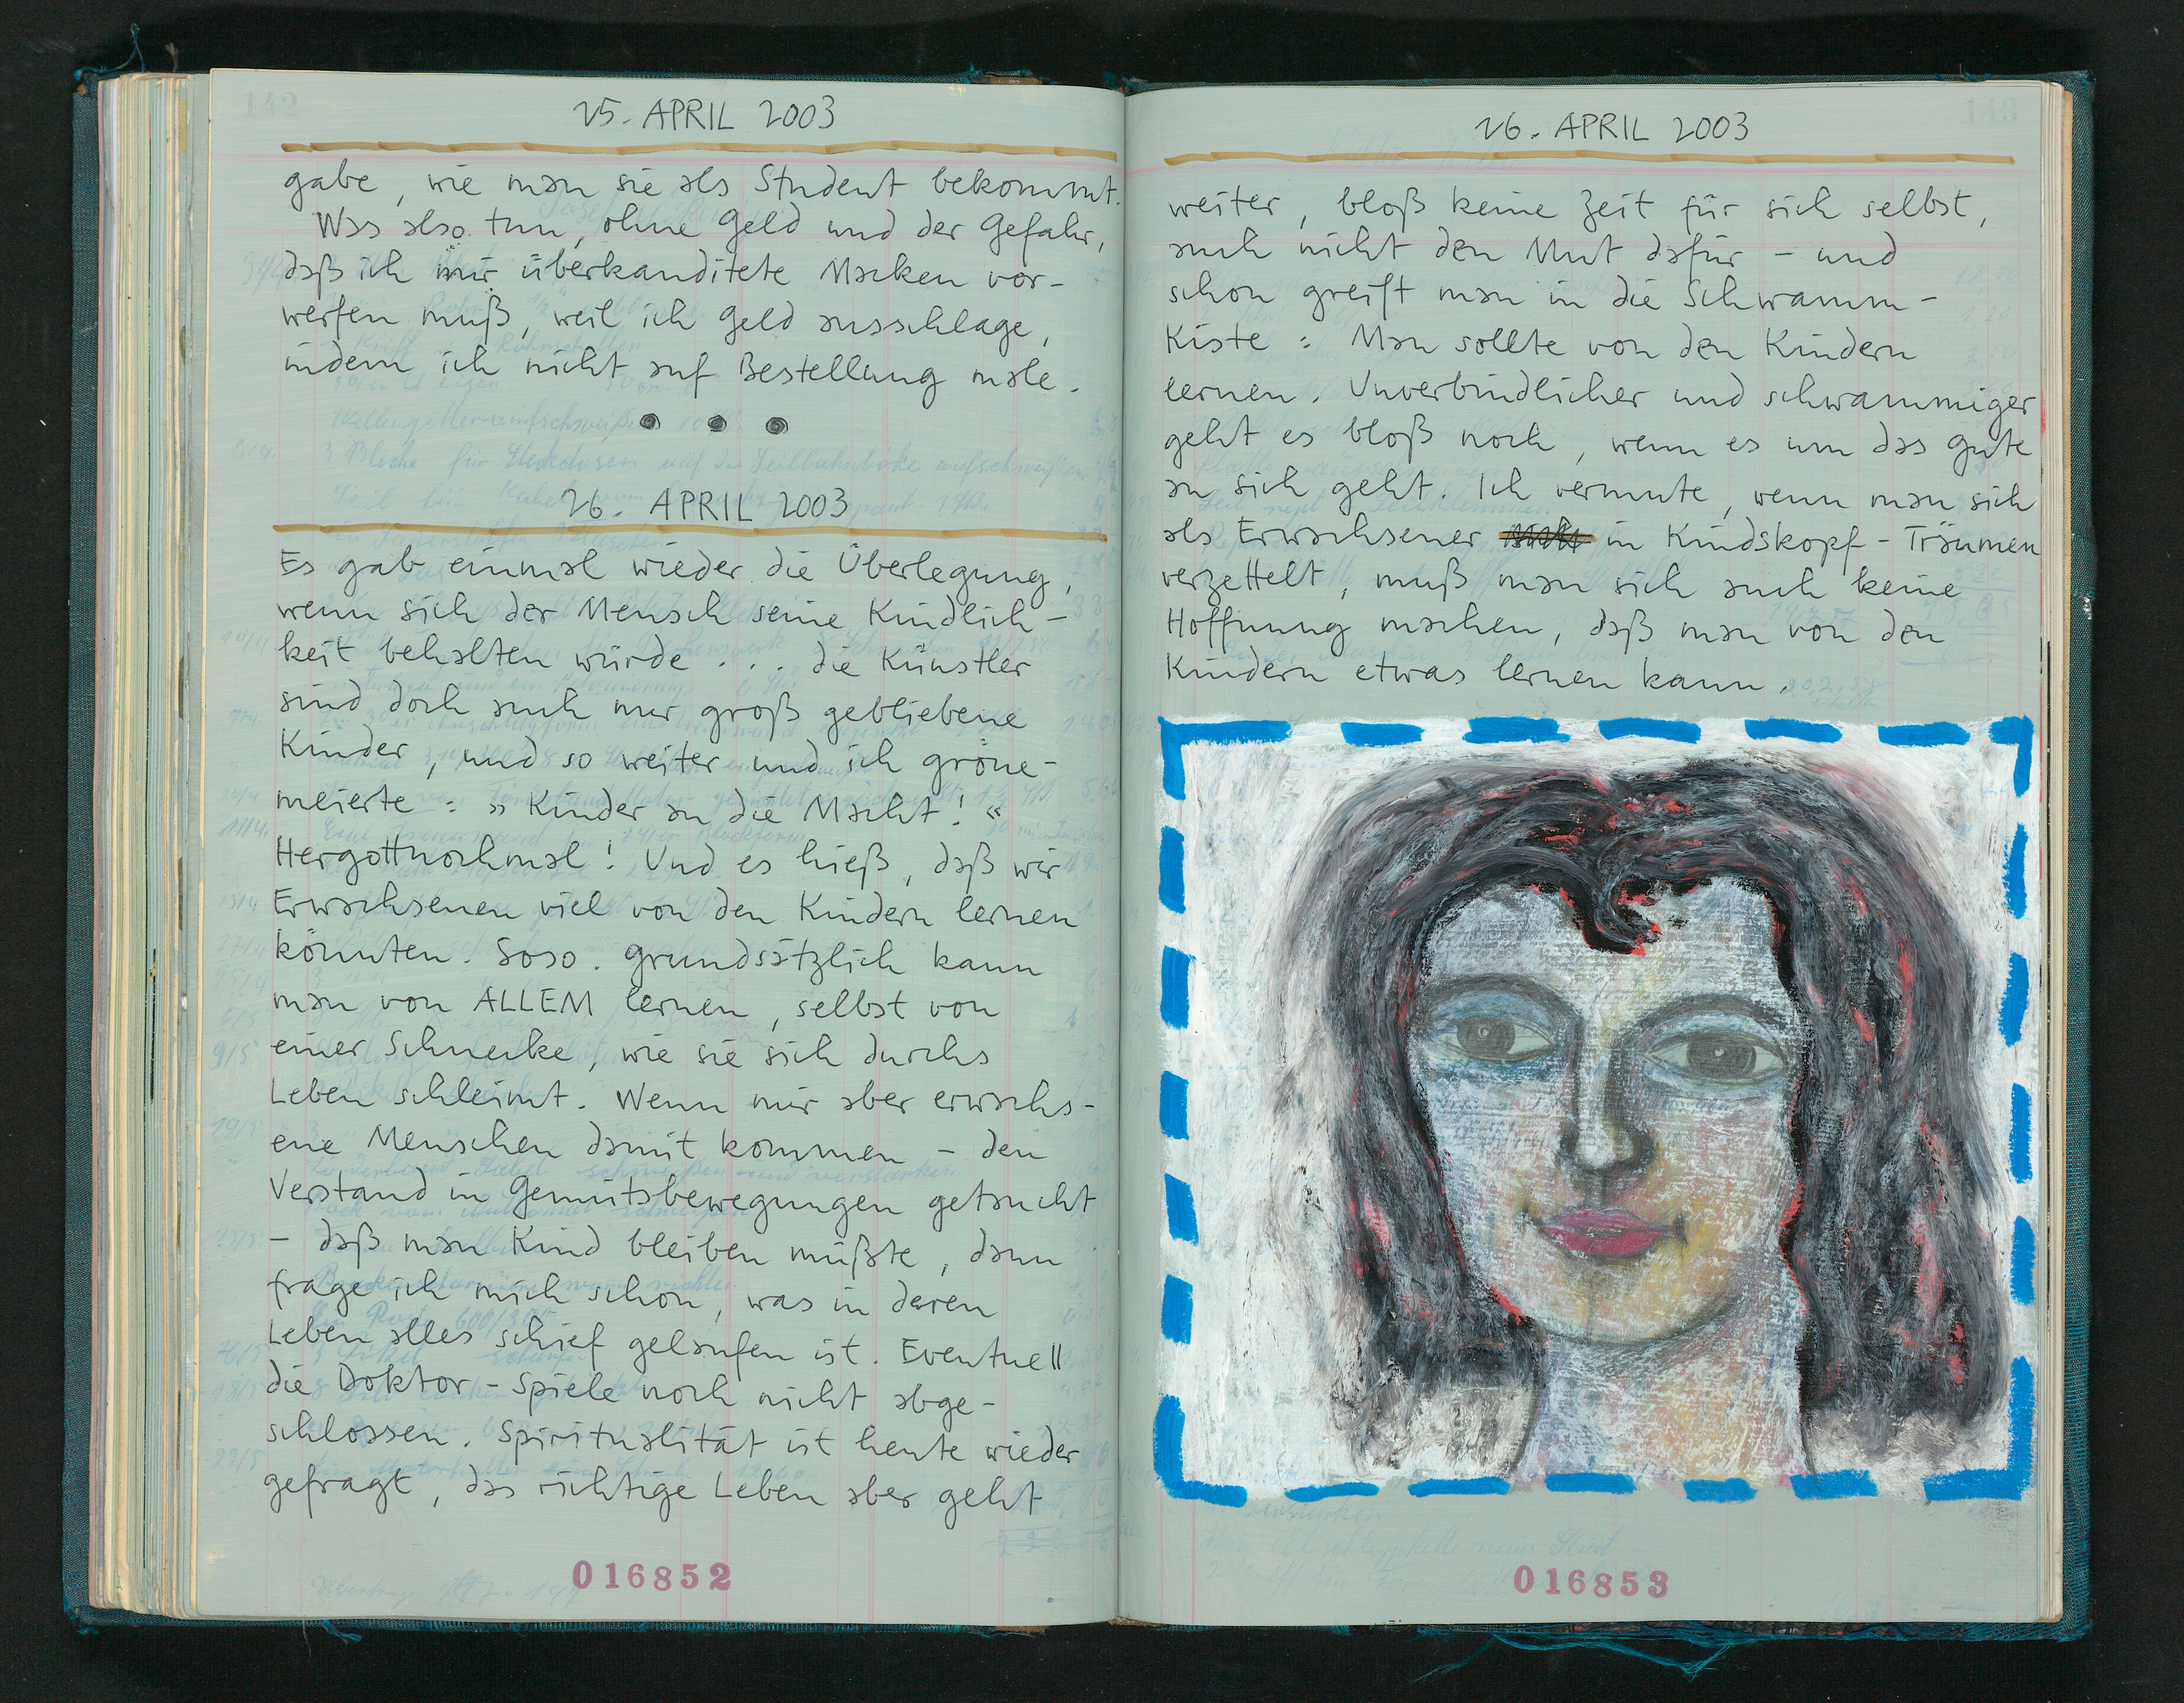 25. APRIL 2003
gabe, wie man sie als Student bekommt.
Was also tun, ohne Geld und der Gefahr,
daß ich mir überkanditete Macken vor-
werfen muß, weil ich Geld ausschlage,
indem ich nicht auf Bestellung male.
26. APRIL 2003
Es gab einmal wieder die Überlegung,
wenn sich der Mensch seine Kindlich-
keit behalten würde ... die Künstler
sind doch auch nur groß gebliebene
Kinder, und so weiter und ich gröne-
meierte: »Kinder an die Macht!«
Hergottnochmal! Und es hieß, daß wir
Erwachsenen viel von den Kindern lernen
könnten. Soso. Grundsätzlich kann
man von ALLEM lernen, selbst von
einer Schnecke, wie sie sich durchs
Leben schleimt. Wenn mir aber erwachs-
ene Menschen damit kommen - den
Verstand in Gemütsbewegungen getaucht
- daß man Kind bleiben müßte, dann
frage ich mich schon, was in deren
Leben alles schief gelaufen ist. Eventuell
die Doktor-Spiele noch nicht abge-
schlossen. Spiritualität ist heute wieder
gefragt, das richtige Leben aber geht
016852
26. APRIL 2003
weiter, bloß keine Zeit für sich selbst,
auch nicht den Mut dafür - und
schon greift man in die Schwamm-
Kiste: Man sollte von den Kindern
lernen. Unverbindlicher und schwammiger
geht es bloß noch, wenn es um das Gute
an sich geht. Ich vermute, wenn man sich
als Erwachsener in Kindskopf-Träumen
verzettelt, muß man sich auch keine
Hoffnung machen, daß man von den
Kindern etwas lernen kann.
016853